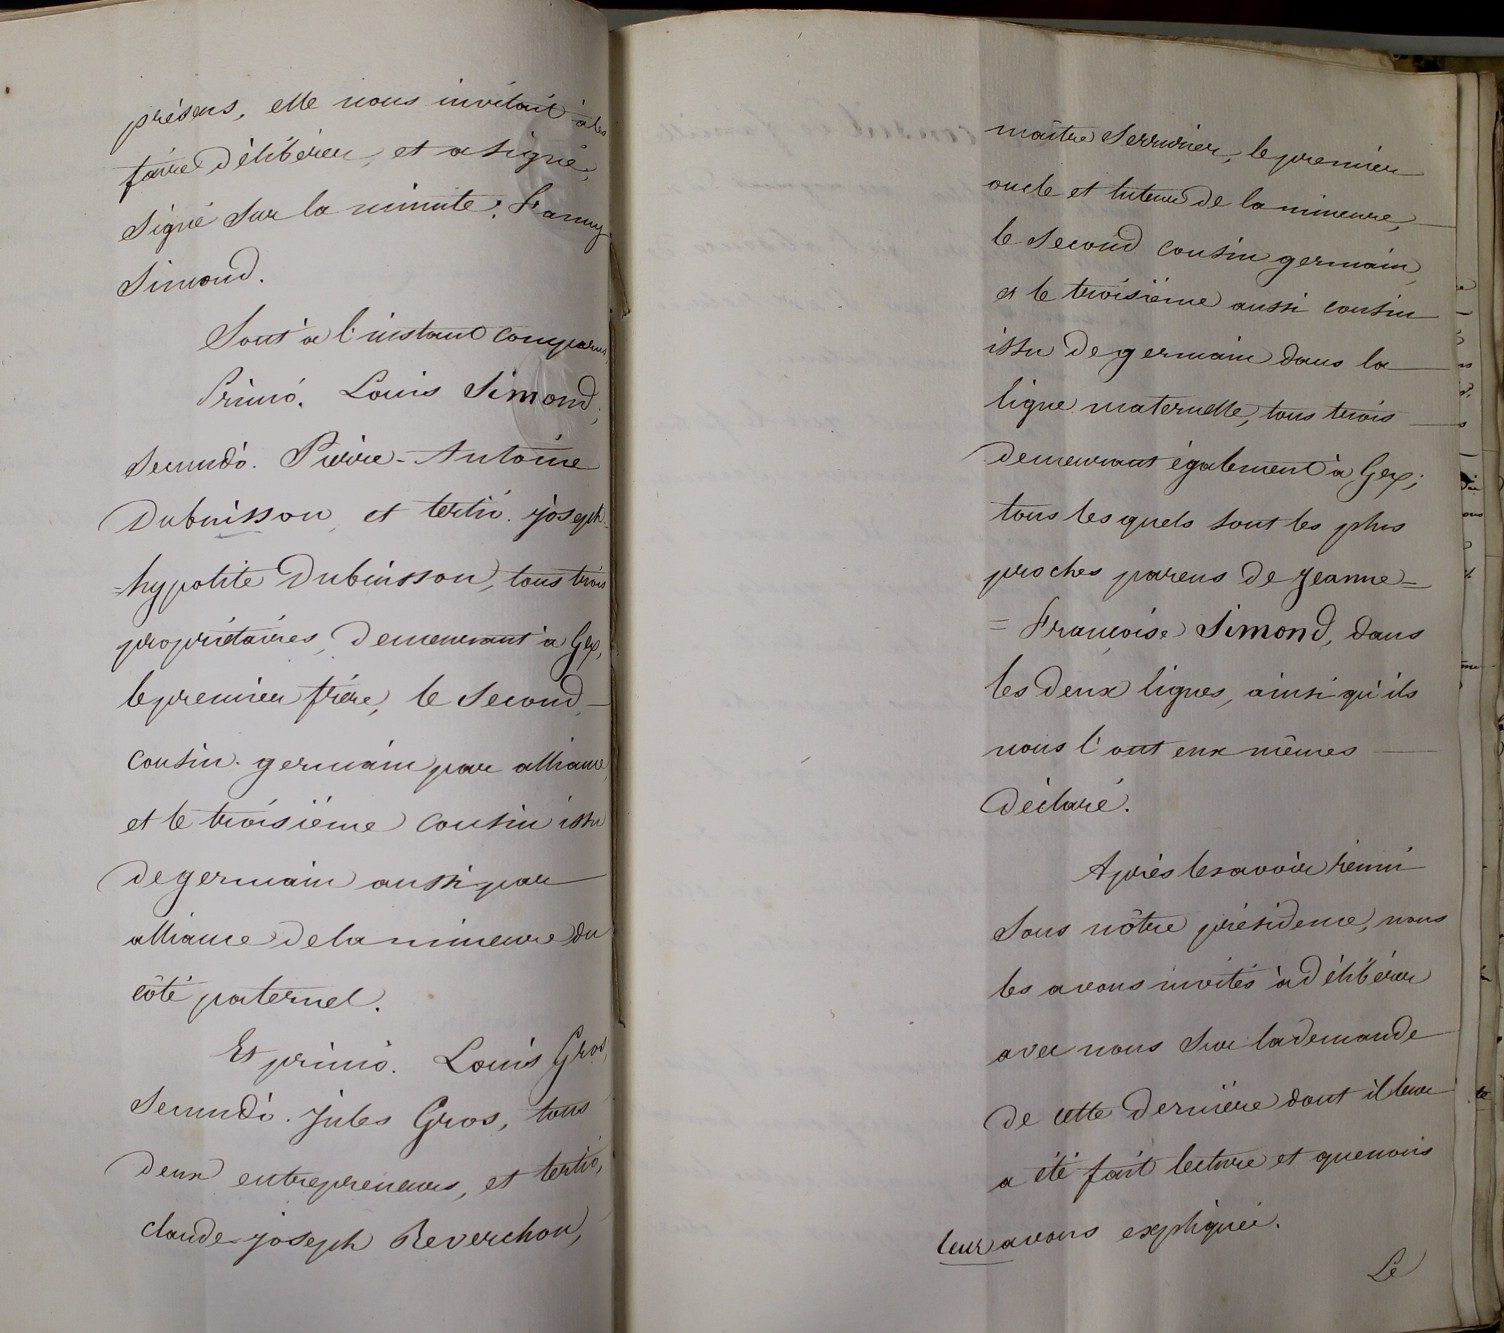 présens, elle nous invitait à les
faire délibérer, et a signé.
Signé sur la minute: Fanny
Simond.
Sont à l'instant comparus
Primò. Louis Simond,
Secundò. Pierre-Antoine
Dubuisson, et tertiò. joseph-
=hypolite Dubuisson, tous trois
propriétaires, demeurant à Gex,
le premier frère, le second
cousin germain par alliance,
et le troisième cousin issu
de germain aussi par
alliance de la mineure du
côté paternel.
Et primò. Louis Gros,
Secundò. Jules Gros, tous
deux entrepreneurs, et tertiò,
claude-joseph Reverchon,
maître Serrurier, le premier
oncle et tuteur de la mineure,
le Second cousin germain,
et le troisième aussi cousin
issu de germain dans la
ligne maternelle, tous trois
demeurant également à Gex;
tous lesquels sont les plus
proches parens de Jeanne=
=Françoise Simond, dans
les deux lignes, ainsi qu'ils
nous l'ont eux mêmes
déclaré.
Après les avoir réuni
Sous nôtre présidence, nous
les avons invités à délibérer
avec nous sur la demande
de cette dernière dont il leur
a été fait lecture et que nous
leur avons expliquée.
Le